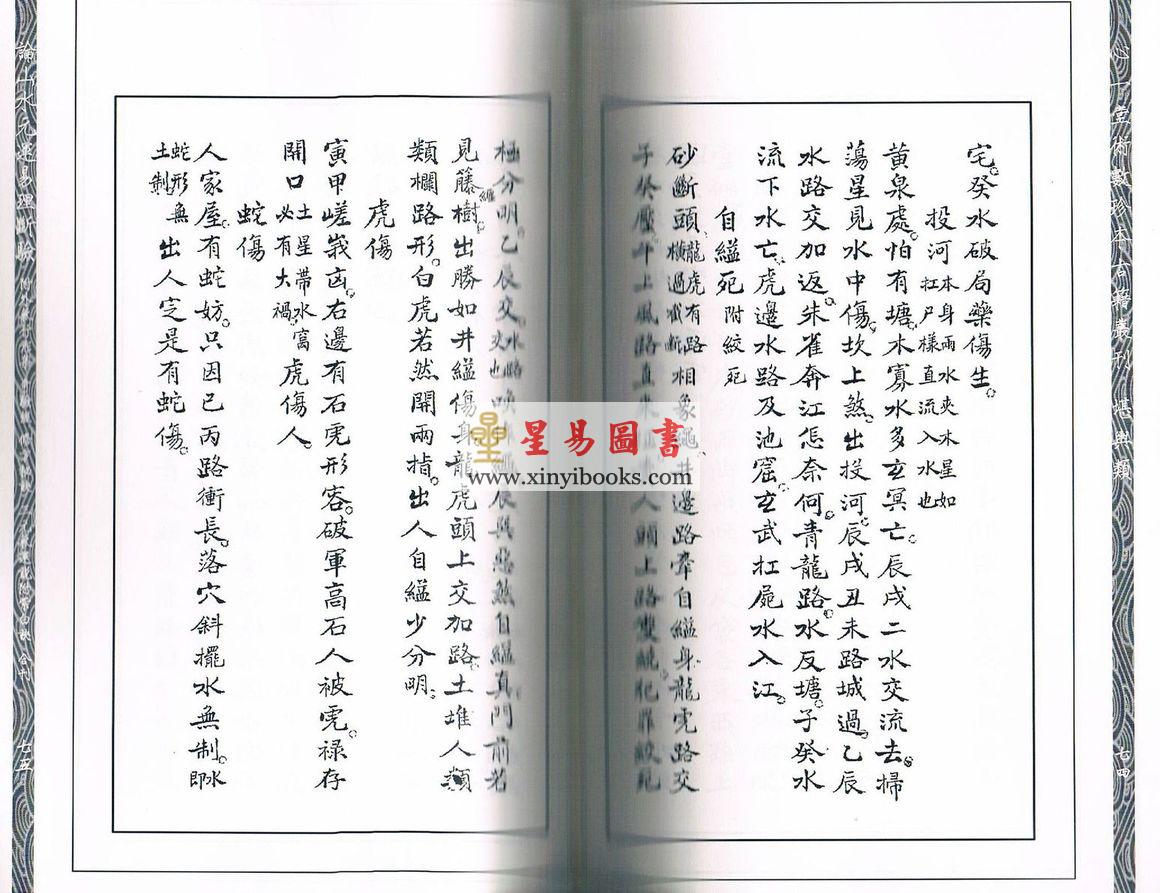 心一堂術數珍本古籍叢刊 堪輿類
七四
宅癸水破局藥傷生。
投河 本身兩水夾木星如
扛尸樣直流入水也
黃泉處。怕有塘。木寡水多玄冥亡。辰戌二水交流去。掃
蕩星見水中傷。坎上煞。出投河。辰戌丑未路城過。乙辰
水路交加返。朱雀奔江怎奈何。青龍路。水反塘。子癸水
流下水亡。虎邊水路及池窟。玄武扛屍水入江。
自縊死 附絞死
砂斷頭。龍虎有路
橫過截斷 相象繩井邊路牽自縊身。龍虎路交
子癸壓午上風路直來 人頭上路雙 犯罪絞死
極分明。乙辰交。水路
交也 喚 繩 辰巽惡煞自縊真。門前若
見籐纏樹。出勝如井縊傷身。龍虎頭上交加路。土堆人類
類欄路形。白虎若然開兩指。出人自縊少分明。
虎傷
寅甲嵯峩凶。右邊有石虎形容。破軍高石人被虎。祿存
開口土星帶水窩
必有大禍。虎傷人。
蛇傷
人家屋。有蛇妨。只因巳丙路衝長。落穴斜擺水無制。水
即
蛇形無
土制。出人定是有蛇傷。
論山水元運易理斷驗
合刊
七五
星易圖書
www.xinyibooks.com